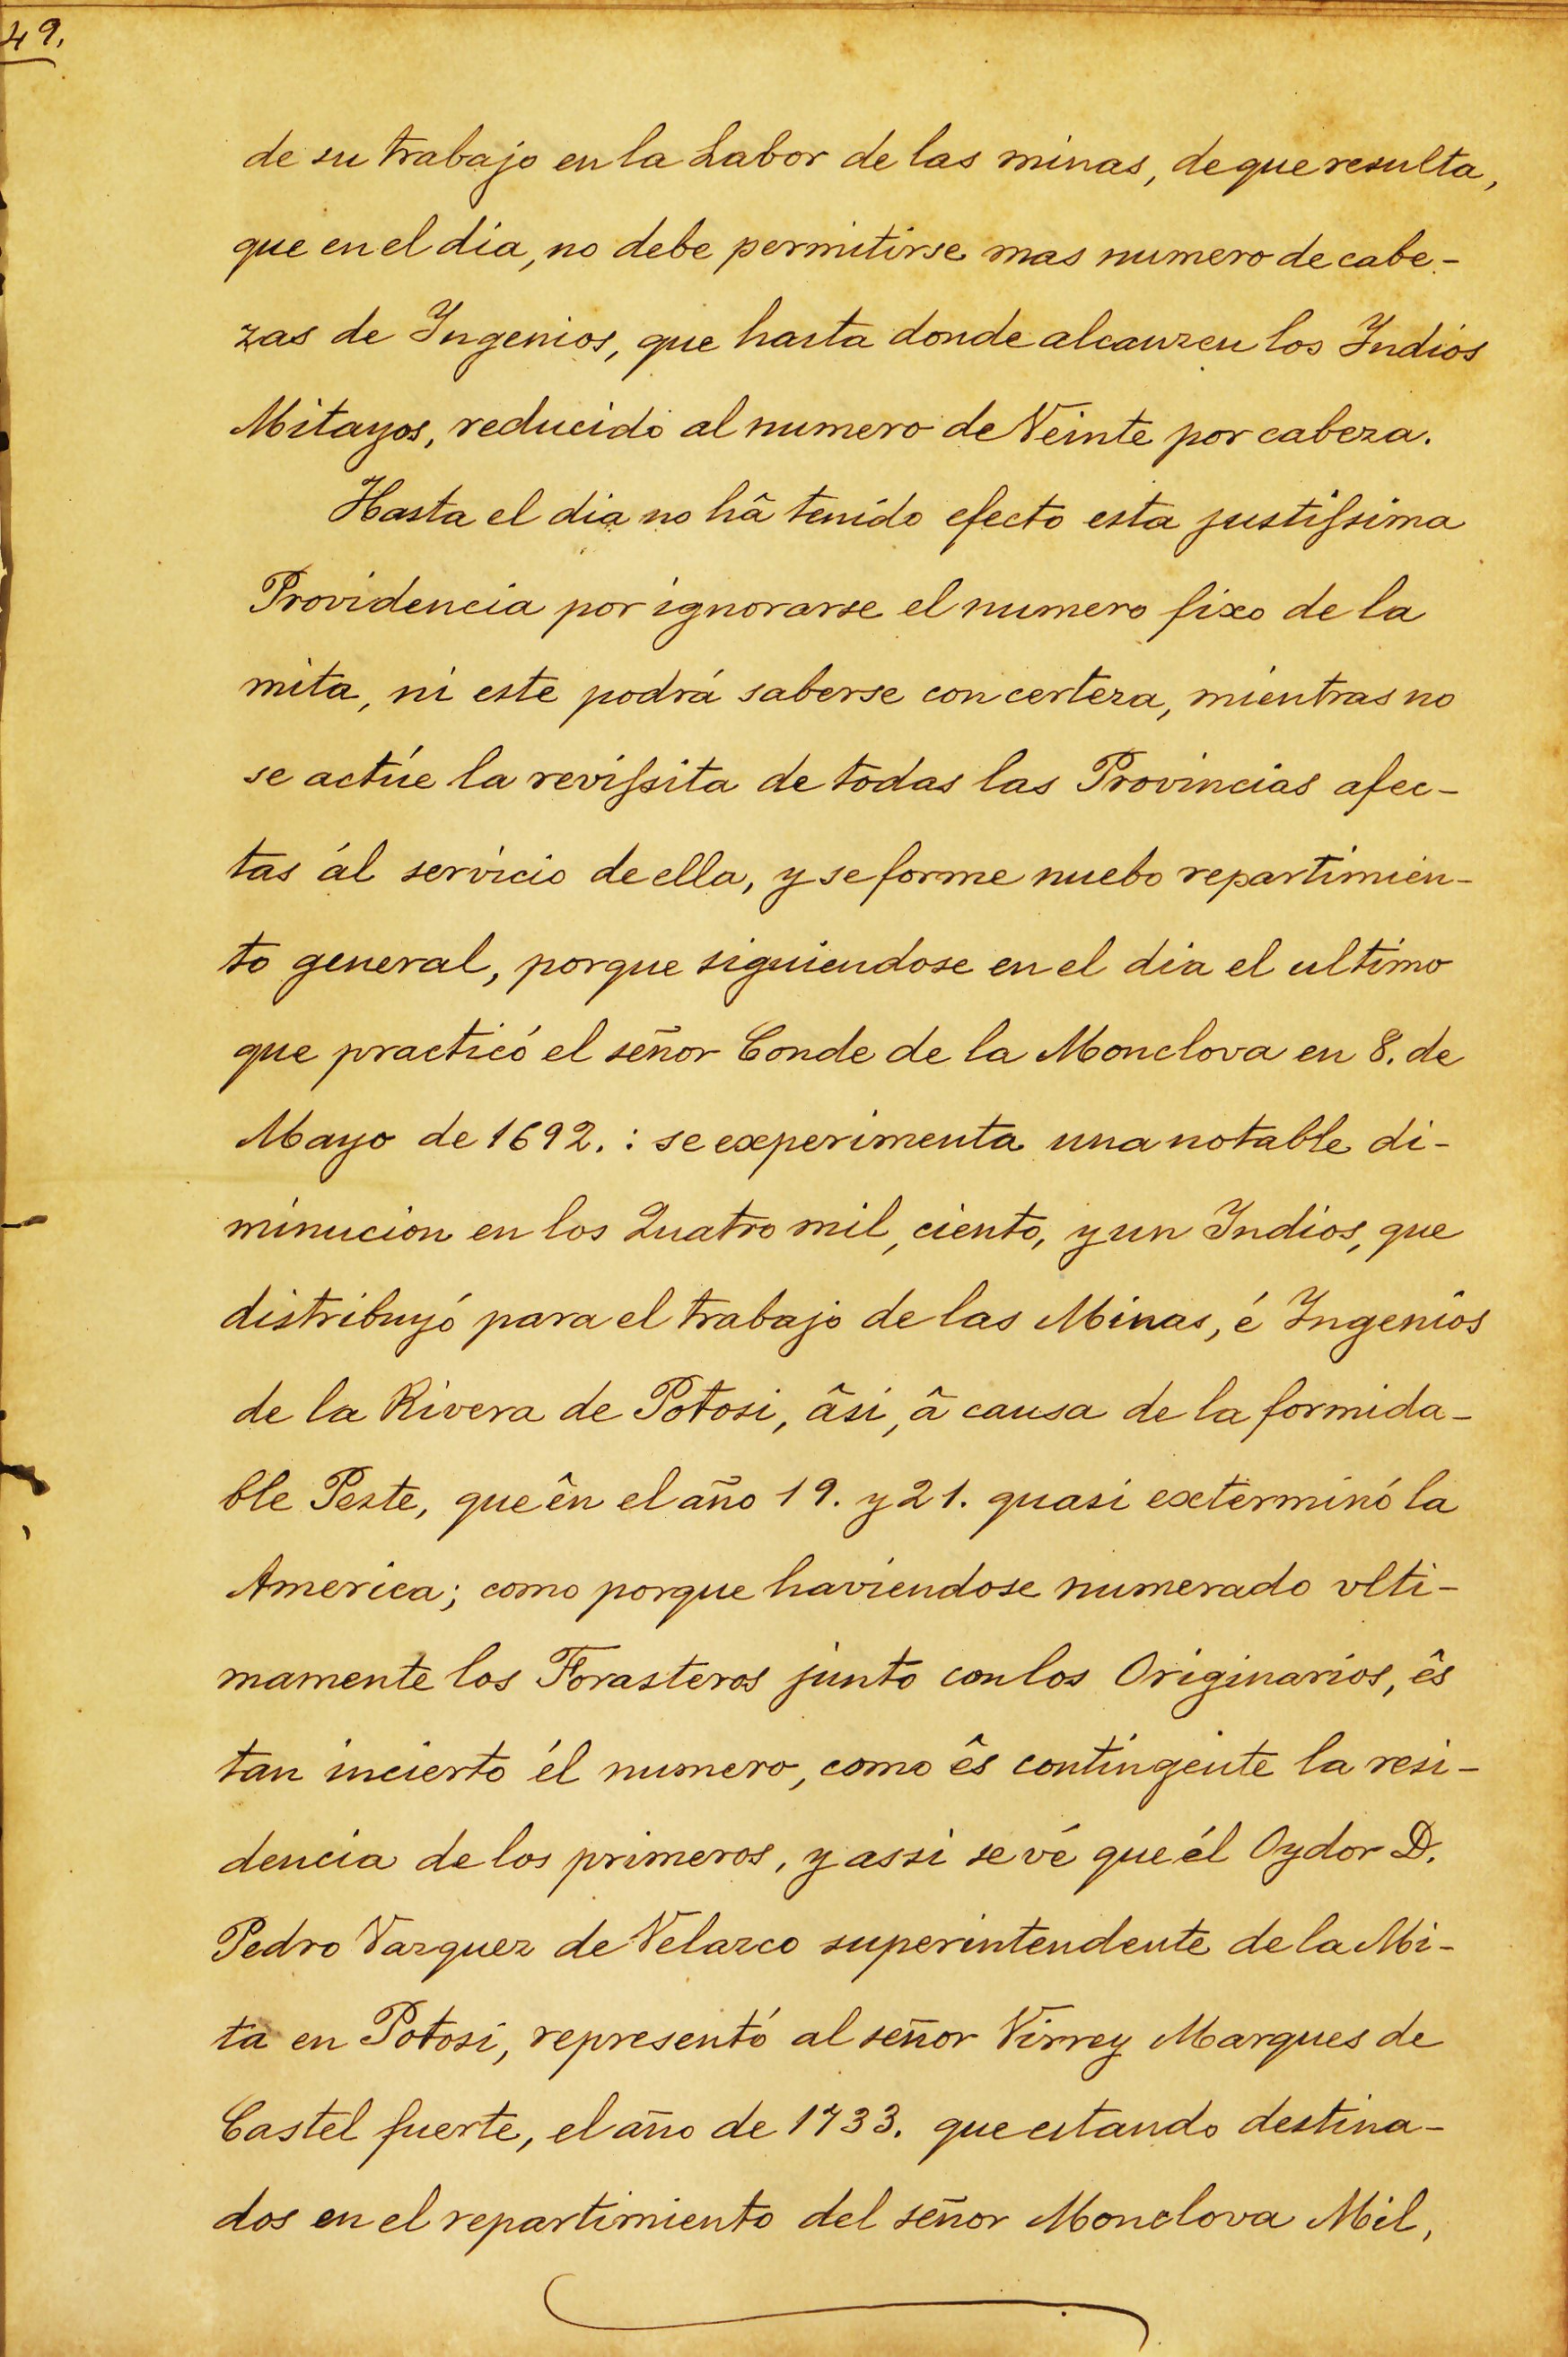 49.
de su trabajo en la Labor de las minas, de que resulta,
que en el dia, no debe permitirse mas numero de cabe-
zas de Ingenios, que hasta donde alcanzen los Indios
Mitayos, reducido al numero de Veinte por cabeza.
Hasta el dia no hâ tenido efecto esta justissima
Providencia por ignorarse el numero fixo de la
mita, ni este podrá saberse con certeza, mientras no
se actúe la revissita de todas las Provincias afec-
tas ál servicio de ella, y se forme nuebo repartimien-
to general, porque siguiendose en el dia el ultimo
que practicó el señor Conde de la Monclova en 8. de
Mayo de 1692. : se experimenta una notable di-
minucion en los Quatro mil, ciento, y un Indios, que
distribuyó para el trabajo de las Minas, é Ingenios
de la Rivera de Potosi, âsi, â causa de la formida-
ble Peste, que ên el año 19. y 21. quasi exterminó la
America; como porque haviendose numerado vlti-
mamente los Forasteros junto con los Originarios, ês
tan incierto él numero, como ês contingente la resi-
dencia de los primeros, y assi se vé que él Oydor D.
Pedro Vazquez de Velazco superintendente de la Mi-
ta en Potosi, representó al señor Virrey Marques de
Castel fuerte, el año de 1733. que estando destina-
dos en el repartimiento del señor Monclova Mil,